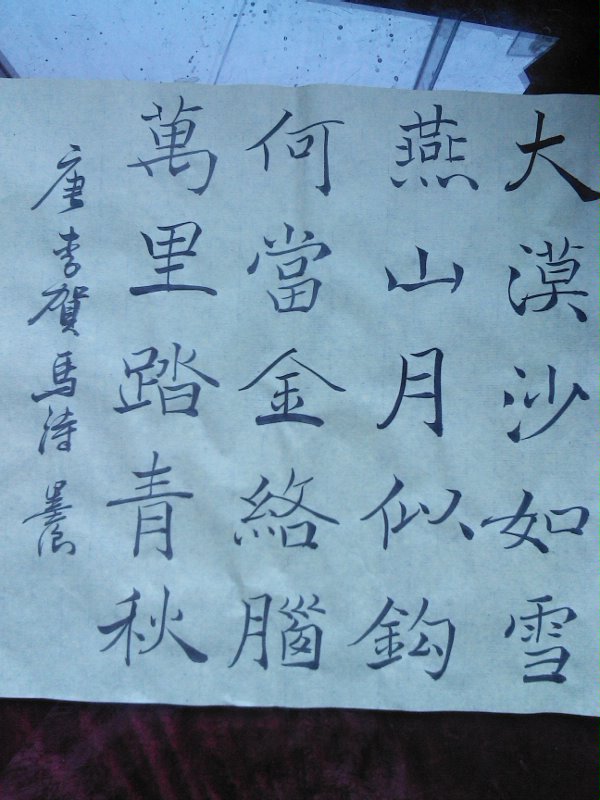 大漠沙如雪
燕山月似鈎
何當金絡腦
萬里踏青秋
唐李賀馬诗